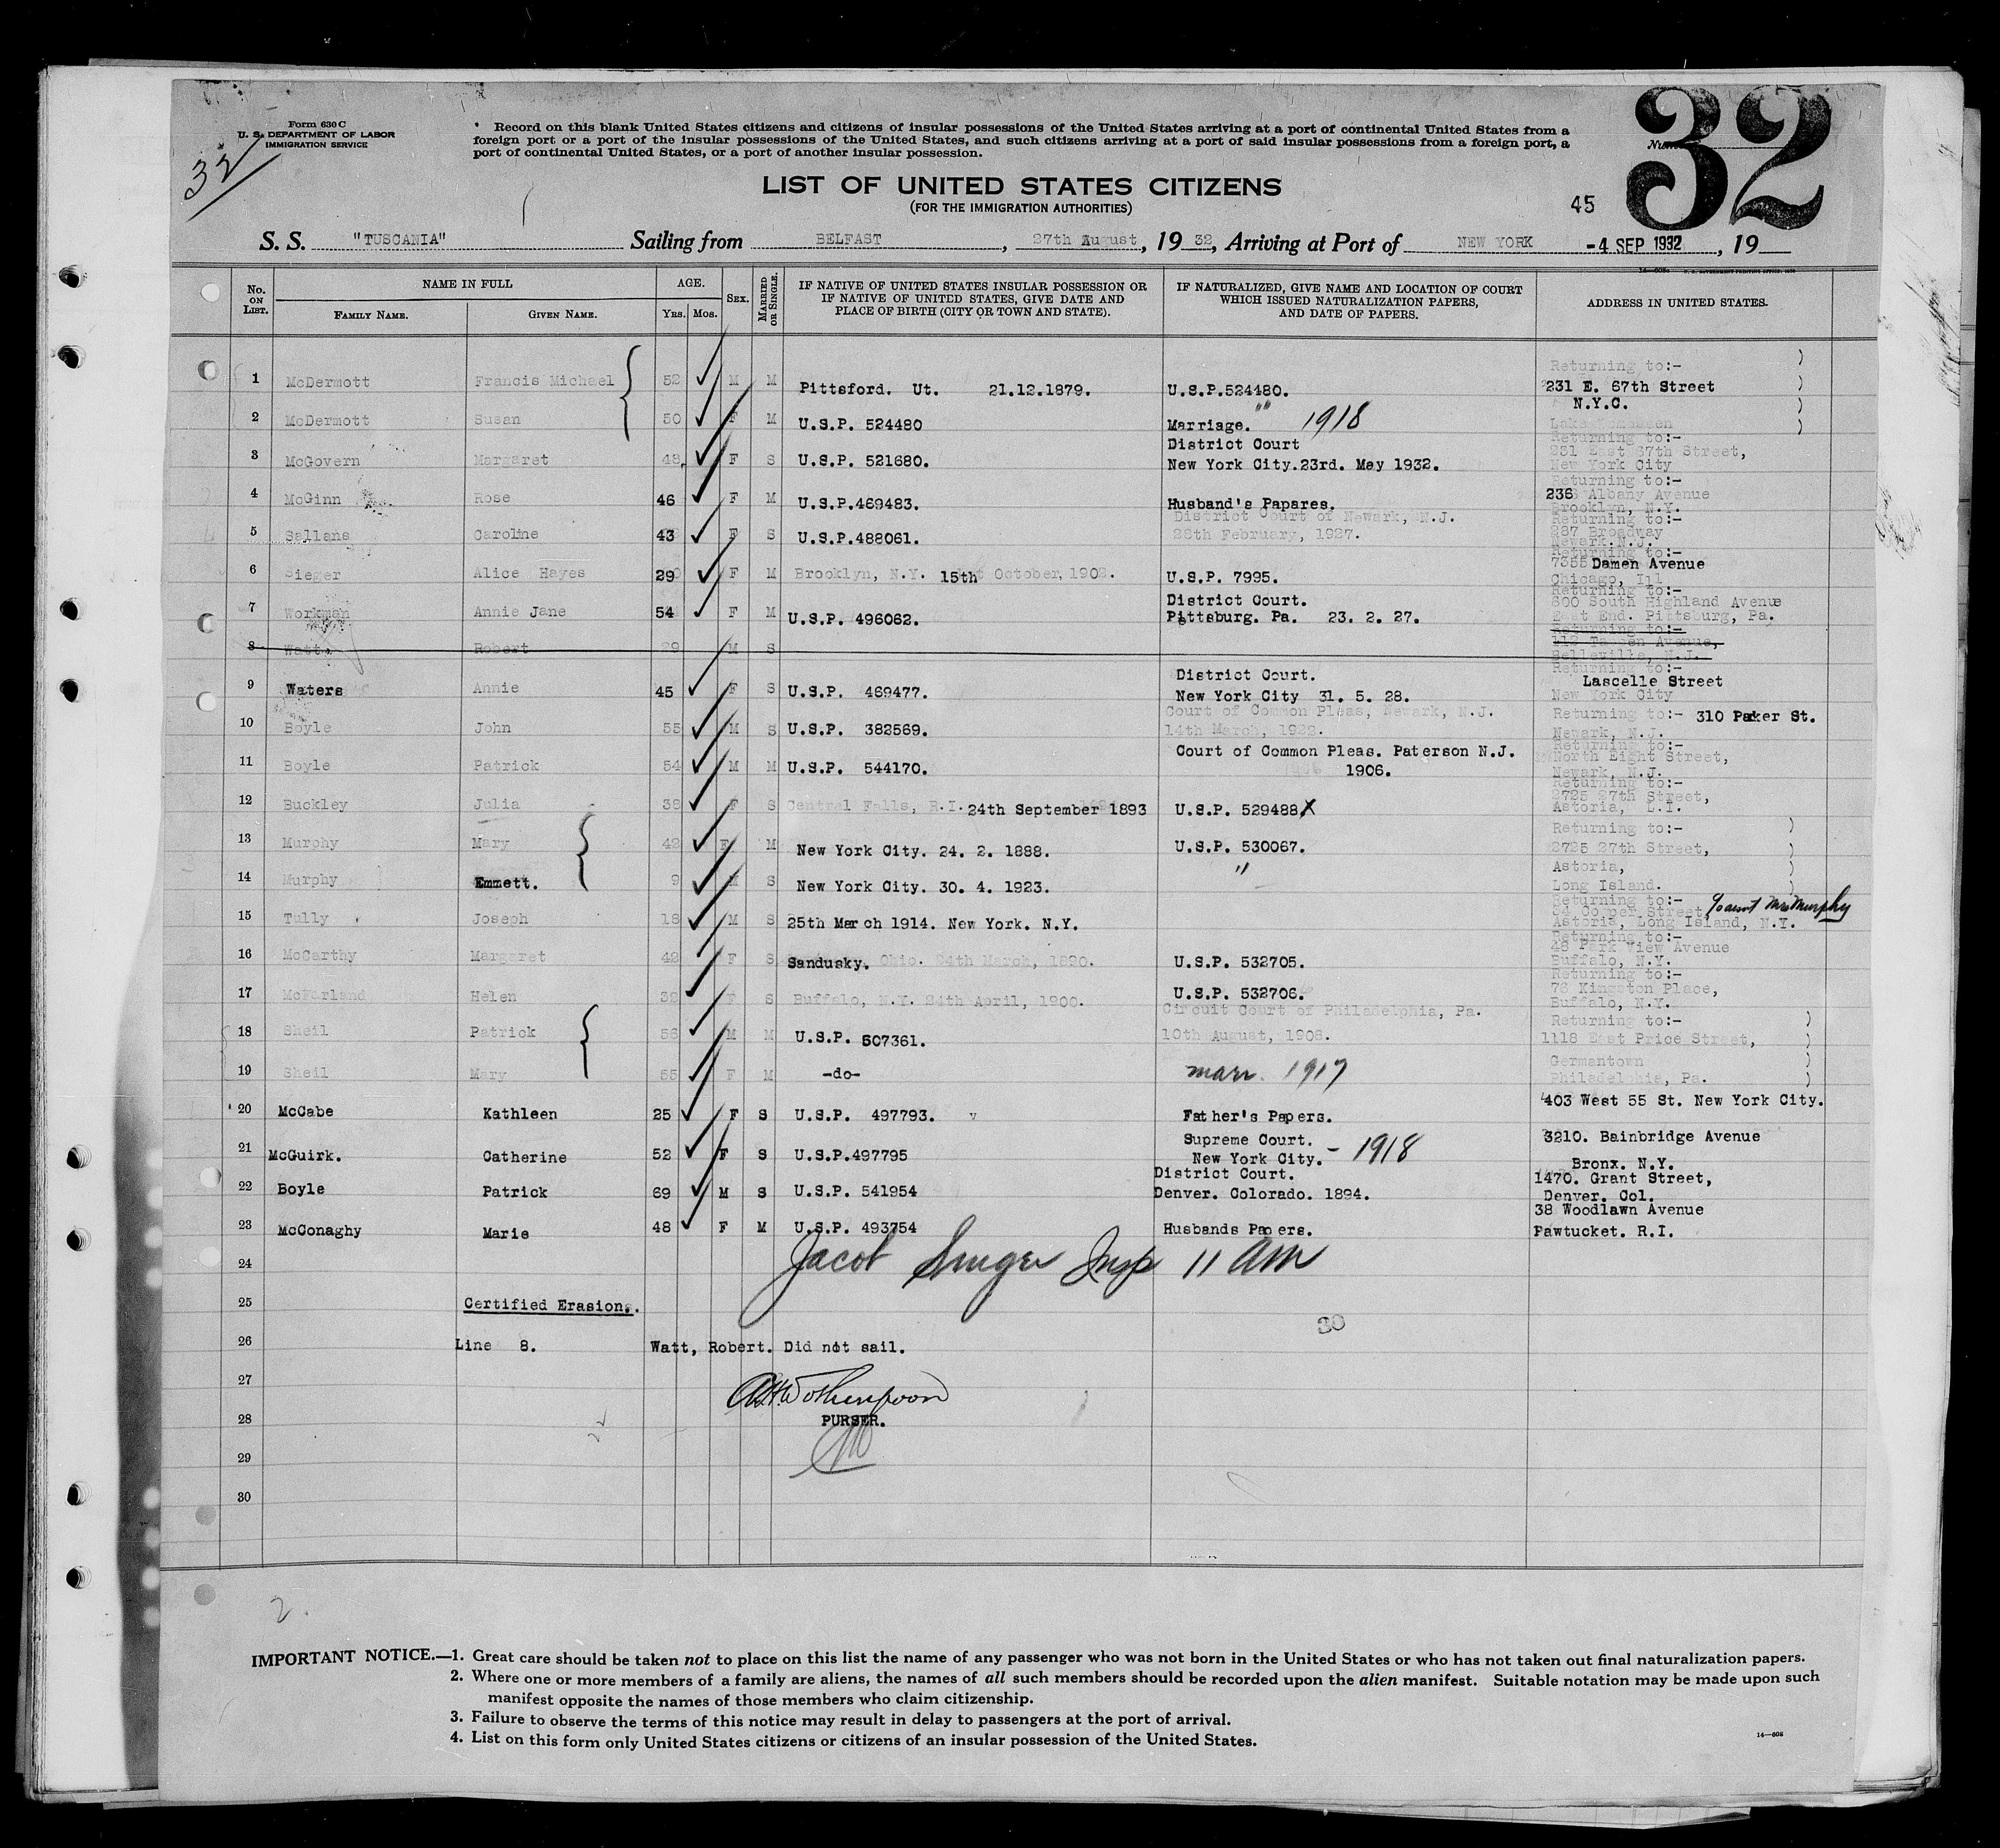 Form 630 C
U. S. DEPARTMENT OF LABOR
IMMIGRATION SERVICE
32
Record on this blank United States citizens and citizens of insular possessions of the United States arriving at a port of continental United States from a
foreign port or a port of the insular possessions of the United States, and such citizens arriving at a port of said insular possessions from a foreign port, a
port of continental United States, or a port of another insular possession.
32
LIST OF UNITED STATES CITIZENS
(FOR THE IMMIGRATION AUTHORITIES)
45
S. S. "TUSCANIA" Sailing from BELFAST, 27th August, 19 32, Arriving at Port of NEW YORK -4 SEP 1932, 19
No. ON LIST. NAME IN FULL FAMILY NAME. GIVEN NAME. AGE. Yrs. Mos. SEX. MARRIED OR SINGLE. IF NATIVE OF UNITED STATES INSULAR POSSESSION OR IF NATIVE OF UNITED STATES, GIVE DATE AND PLACE OF BIRTH (CITY OR TOWN AND STATE). IF NATURALIZED, GIVE NAME AND LOCATION OF COURT WHICH ISSUED NATURALIZATION PAPERS, AND DATE OF PAPERS. ADDRESS IN UNITED STATES.
1 McDermott Francis Michael 52 M M Pittsford. Ut. 21.12.1879. U.S.P.524480. Returning to:- 231 E. 67th Street
N.Y.C.
2 McDermott Susan 50 F M U.S.P. 524480 " Marriage. 1918
3 McGovern Margaret 48 F S U.S.P. 521680. District Court New York City.23rd. May 1932. Returning to:- 231 East 67th Street, New York City
4 McGinn Rose 46 F M U.S.P.469483. Husband's Papares. Returning to:- 236 Albany Avenue Brooklyn, N.Y.
5 Sallans Caroline 43 F S U.S.P.488061. District Court of Newark, N.J. 28th February, 1927. Returning to:- 287 Broadway Newark N.J.
6 Sieger Alice Hayes 29 F M Brooklyn, N.Y. 15th October, 1902. U.S.P. 7995. Returning to:- 7355 Damen Avenue Chicago, Ill
7 Workman Annie Jane 54 F M U.S.P. 496062. District Court. Pittsburg. Pa. 23. 2. 27. Returning to:- 600 South Highland Avenue East End. Pittsburg, Pa.
8 Watt Robert 29 M S Returning to:- Avenue, Belleville, N.J.
9 Waters Annie 45 F S U.S.P. 469477. District Court. New York City 31. 5. 28. Returning to:- Lascelle Street New York City
10 Boyle John 55 M S U.S.P. 382569. Court of Common Pleas, Newark, N.J. 14th March, 1922. Returning to:- 310 Paker St. Newark, N.J.
11 Boyle Patrick 54 M M U.S.P. 544170. Court of Common Pleas. Paterson N.J. 1906. Returning to:- North Eight Street, Newark, N.J.
12 Buckley Julia 38 F S Central Falls, R.I. 24th September 1893 U.S.P. 529488 X Returning to:- 2725 27th Street, Astoria, L.I.
13 Murphy Mary 42 F M New York City. 24. 2. 1888. U.S.P. 530067. Returning to:- 2725 27th Street,
14 Murphy Emmett. 9 M S New York City. 30. 4. 1923. " Astoria, Long Island.
15 Tully Joseph 18 M S 25th March 1914. New York. N.Y. Returning to:- Street, To aunt Mrs Murphy Astoria, Long Island, N.Y.
16 McCarthy Margaret 42 F S Sandusky. Ohio. 24th March, 1890. U.S.P. 532705. Returning to:- 48 Park View Avenue Buffalo, N.Y.
17 McFarland Helen 32 F S Buffalo, N.Y. 24th April, 1900. U.S.P. 532706. Returning to:- 76 Kingston Place, Buffalo, N.Y.
18 Sheil Patrick 56 M M U.S.P. 507361. Circuit Court of Philadelphia, Pa. 10th August, 1908. Returning to:- 1118 East Price Street,
19 Sheil Mary 55 F M -do- marr. 1917 Germantown Philadelphia, Pa.
20 McCabe Kathleen 25 F S U.S.P. 497793. Father's Papers. 403 West 55 St. New York City.
21 McGuirk. Catherine 52 F S U.S.P.497795 Supreme Court. New York City. - 1918 3210. Bainbridge Avenue Bronx. N.Y.
22 Boyle Patrick 69 M S U.S.P. 541954 District Court. Denver. Colorado. 1894. 1470. Grant Street, Denver. Col.
23 McConaghy Marie 48 F M U.S.P. 493754 Husbands Papers. 38 Woodlawn Avenue Pawtucket. R.I.
24 Jacob Insp 11 AM
25 Certified Erasion.
30
26 Line 8. Watt, Robert. Did not sail.
27
28 PURSER.
29
30
2.
IMPORTANT NOTICE.—1. Great care should be taken not to place on this list the name of any passenger who was not born in the United States or who has not taken out final naturalization papers.
2. Where one or more members of a family are aliens, the names of all such members should be recorded upon the alien manifest. Suitable notation may be made upon such
manifest opposite the names of those members who claim citizenship.
3. Failure to observe the terms of this notice may result in delay to passengers at the port of arrival.
4. List on this form only United States citizens or citizens of an insular possession of the United States.
14—608